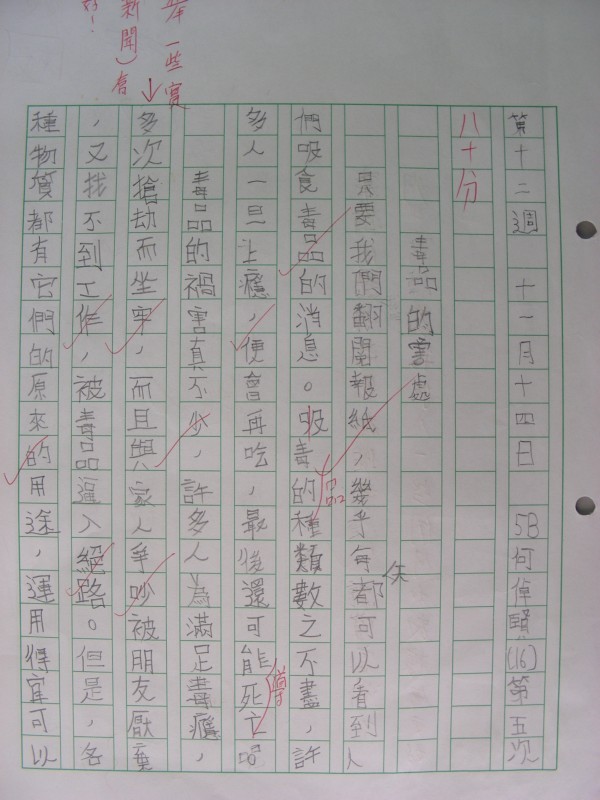 第十二週 十一月十四日 5B何倬賢(16)第五次
八十分
毒品的害處
只要我們翻閱報紙,幾乎每天都可以看到人
們吸食毒品的消息。吸毒品的種類數之不盡,許
多人一旦上癮,便會再吃,最後還可能導死亡
毒品的禍害真不少,許多人為滿足毒癮,
多次搶劫而坐牢,而且與家人爭吵被朋友厭棄
,又找不到工作,被毒品逼入絕路。但是,各
種物質都有它們的原來的用途,運用得宜可以
一些實
新聞)會
好!